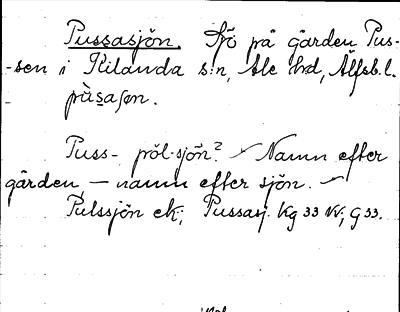 Pussasjön. Sjö på gården Pus-
-sen i Kilanda s:n, Ale hd, Älfsb. l.
pùsaʃøn.
Puss- pöl-sjön? Namn efter
gården, — namn efter sjön.
Pulssjön ek; Pussasj. Kg 33 NV; G 33.